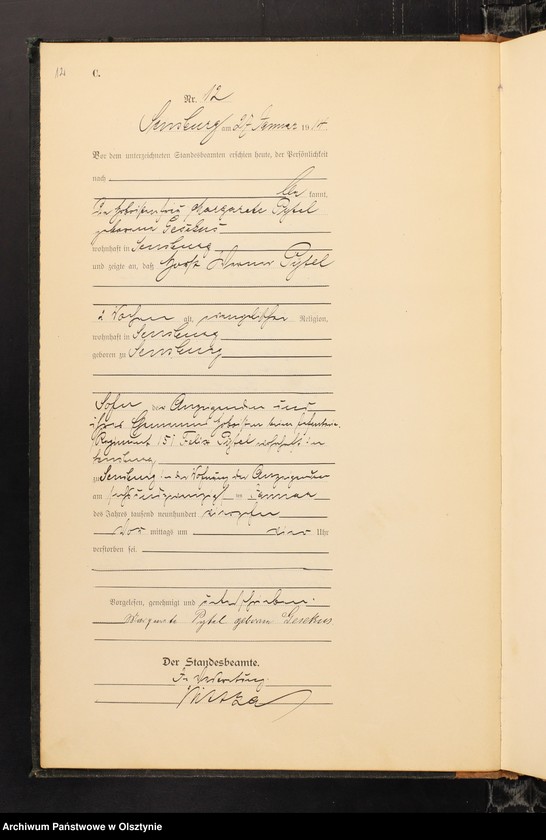 121
C.
Nr. 12
Sensburg am 27 Januar 1914
Vor dem unterzeichneten Standesbeamten erschien heute, der Persönlichkeit
nach
be kannt,
die Hoboistenfrau Margarete Pytel
geborene Gesekus
wohnhaft in Sensburg
und zeigte an, daß Horst Werner Pytel
2 Wochen alt, evangelischer Religion,
wohnhaft in Sensburg
geboren zu Sensburg
Sohn der Anzeigenden und
ihres Ehemannes Hoboisten beim Infanterie
Regiment 151 Felix Pytel wohnhaft in
Sensburg
zu Sensburg in der Wohnung der Anzeigenden
am sechsundzwanzigsten Januar
des Jahres tausend neunhundert vierzehn
Vor mittags um vier Uhr
verstorben sei.
Vorgelesen, genehmigt und unterschrieben.
Margarete Pytel geborene Gesekus
Der Standesbeamte.
In Vertretung.
Archiwum Państwowe w Olsztynie